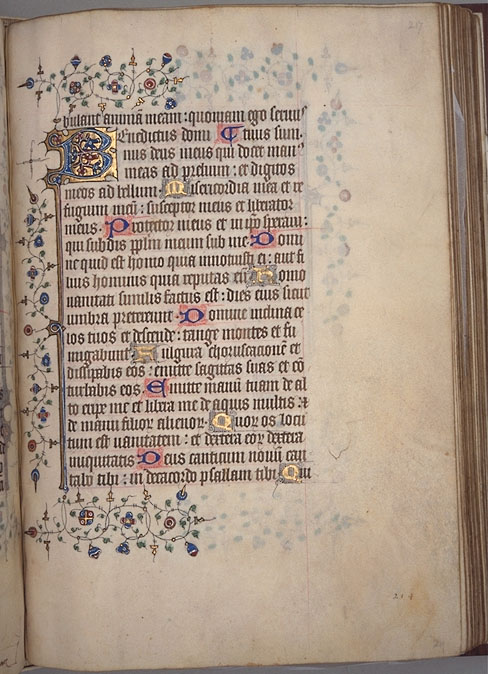 bulant animā meam : quoniam ego seruus
Benedictus domi tuus sum.
nus deus meus qui docet manꝰ
meas ad prelium : et digitos
meos ad bellum. Misericordia mea et re
fugium meū : susceptor meus et liberator
meus. Protector meus et in ipo speraui :
qui subdis pplm meum sub me. Domi
ne quid est homo quia innotuisti ei : aut fi
lius hominis quia reputas eū. Homo
uanitati similis factus est : dies eius sicut
umbra pretereunt. Domine inclina ce
los tuos et descende : tange montes et fu
migabunt. Fulgura choruscationē et
dissipabis eos : emitte sagittas tuas et cō
turbabis eos. Emitte manū tuam de al
to eripe me et libera me de aquis multis &
de manu filioꝝ alienoꝝ. Quoꝝ os locu
tum est uanitatem : et dextera eoꝝ dextera
iniquitatis. Deus canticum nouū can
tabo tibi : in decacordo psallam tibi. Qui
214